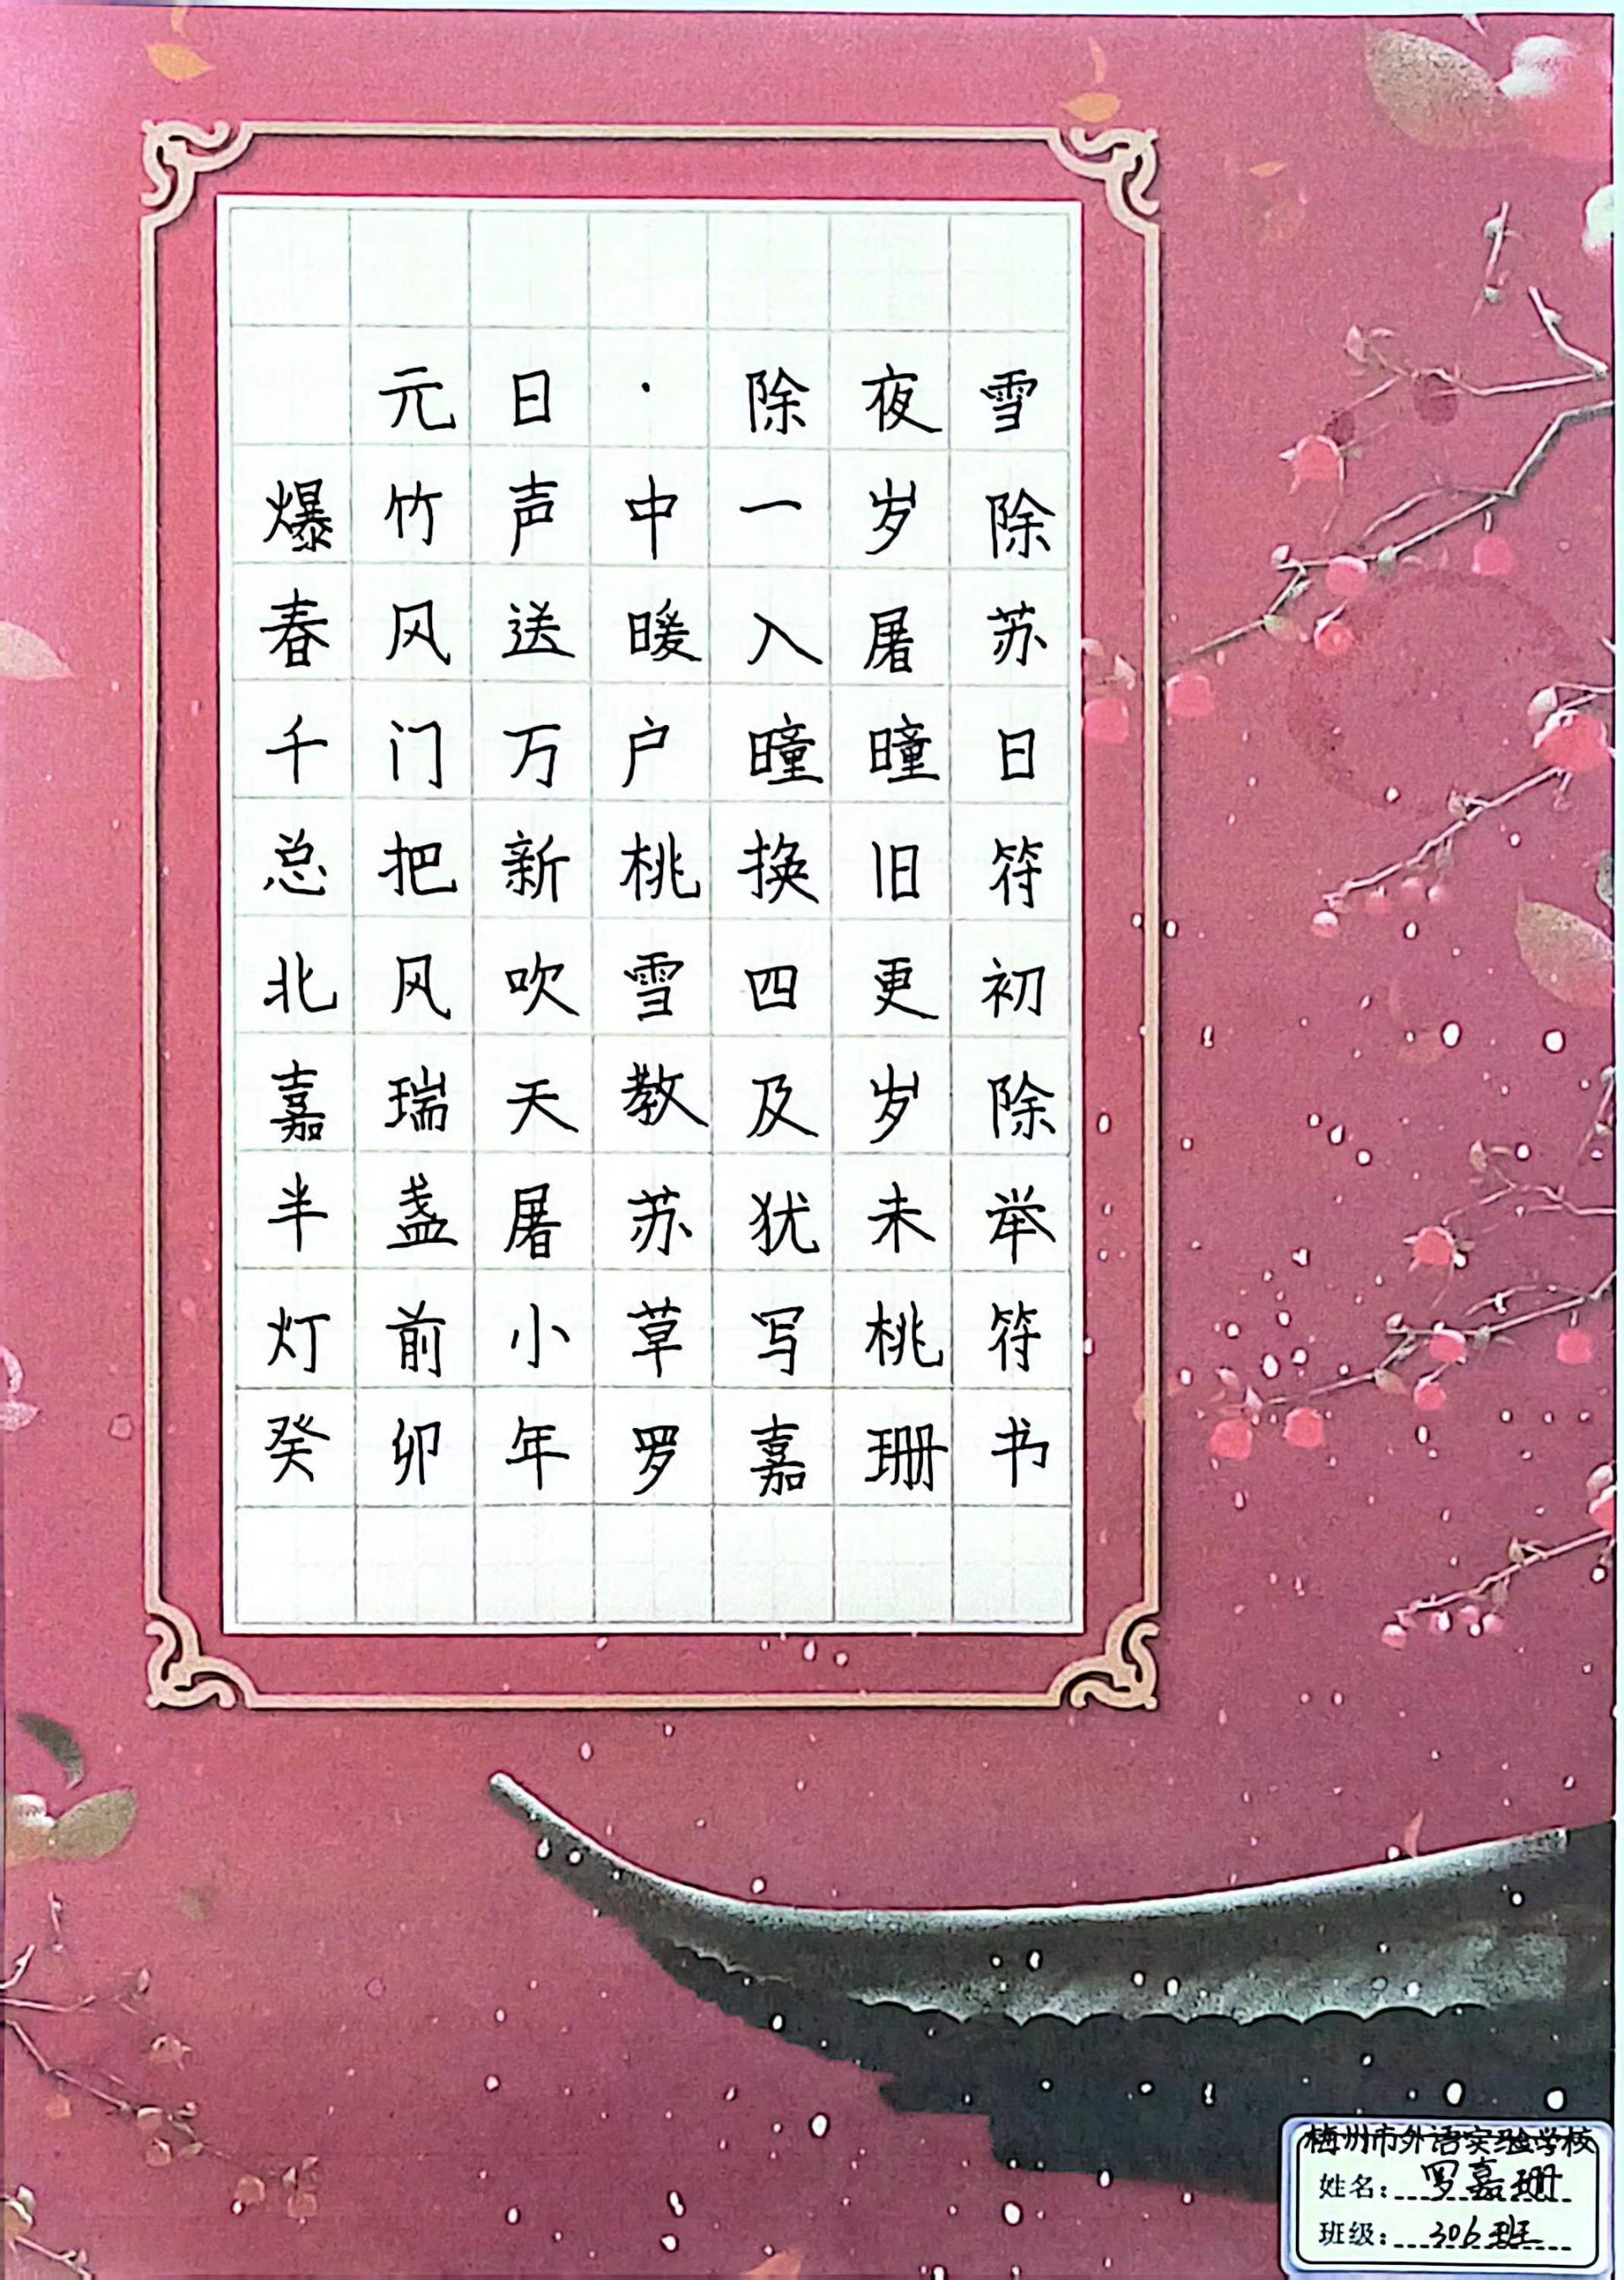 元日·除夜雪
爆竹声中一岁除
春风送暖入屠苏
千门万户曈曈日
总把新桃换旧符
北风吹雪四更初
嘉瑞天教及岁除
半盏屠苏犹未举
灯前小草写桃符
癸卯年罗嘉珊书
梅州市外语实验学校
姓名：罗嘉珊
班级：306班